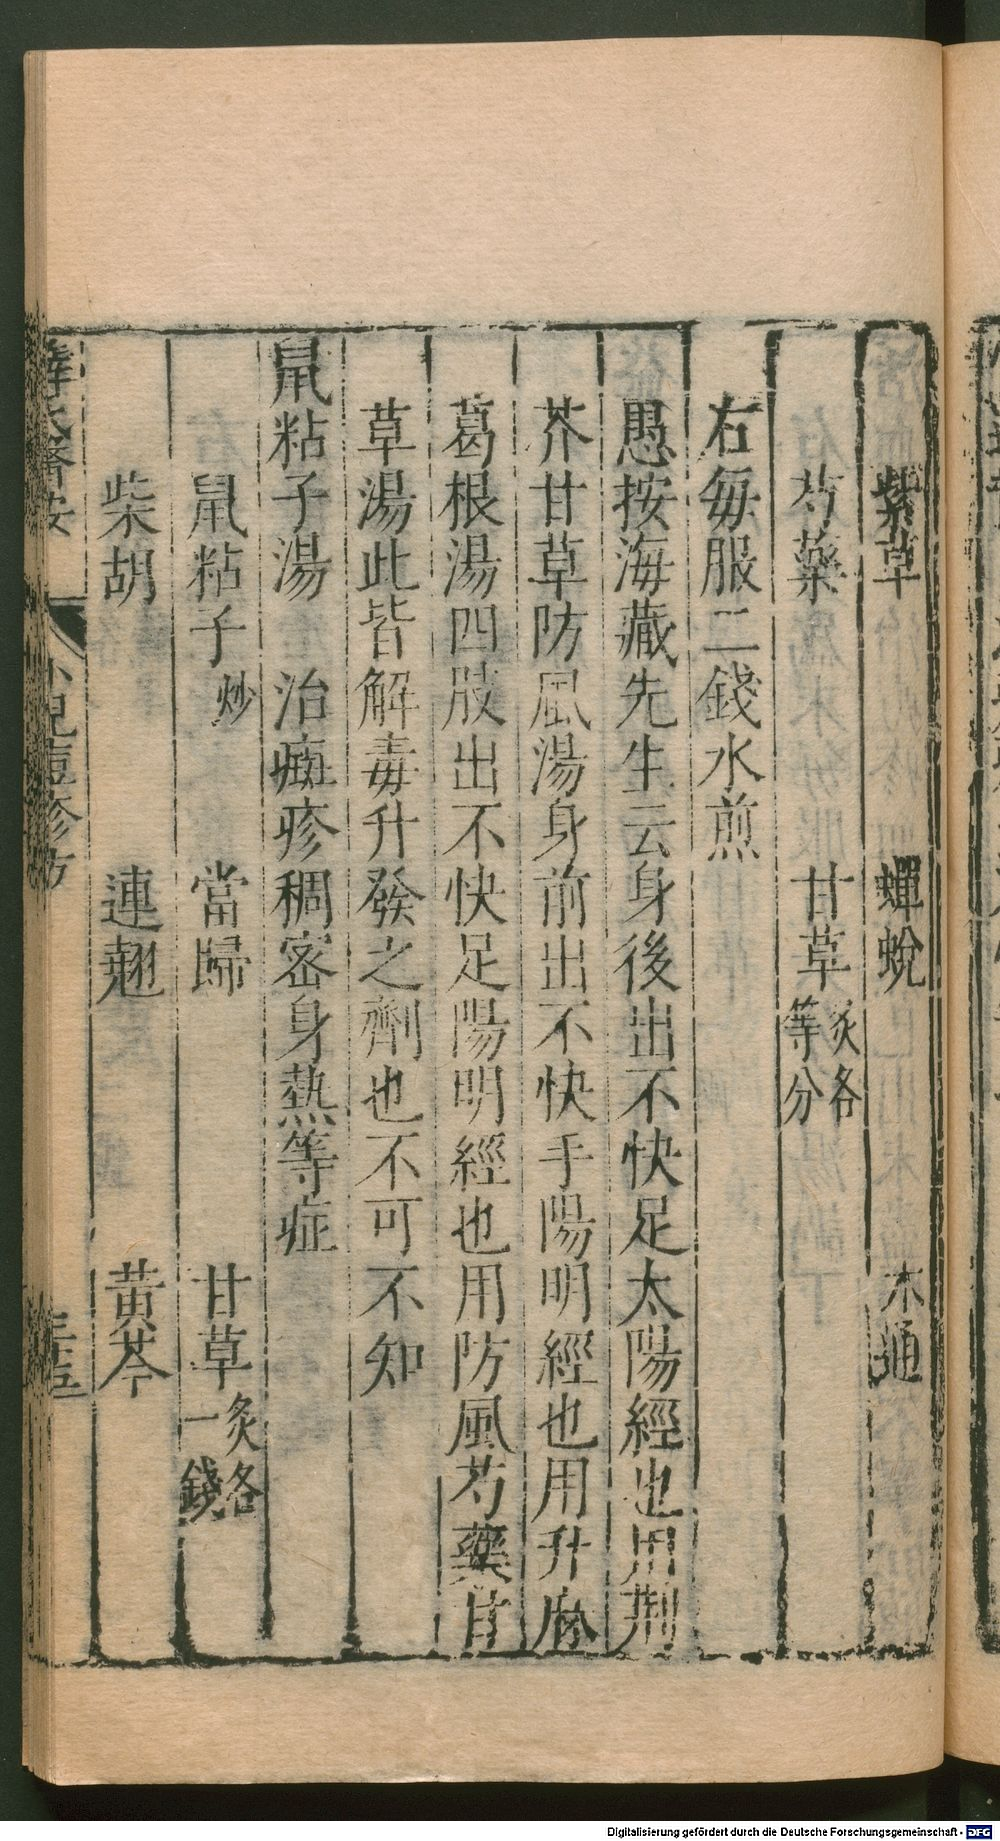 紫草　蟬蛻　木通
芍藥　甘草炙各等分
右每服二錢水煎
愚按海藏先生云身後出不快足太陽經也用荆
芥甘草防風湯身前出不快手陽明經也用升麻
葛根湯四肢出不快足陽明經也用防風芍藥甘
草湯此皆解毒升發之劑也不可不知
鼠粘子湯　治癍疹稠密身熱等症
鼠粘子炒　當歸　甘草炙各一錢
柴胡　連翹　黃芩
薛氏醫按　小兒痘疹方
Digitalisierung gefördert durch die Deutsche Forschungsgemeinschaft - DFG